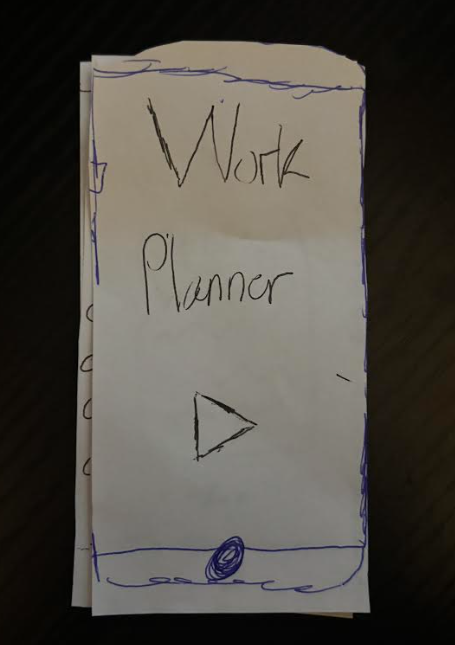 Work
Planner